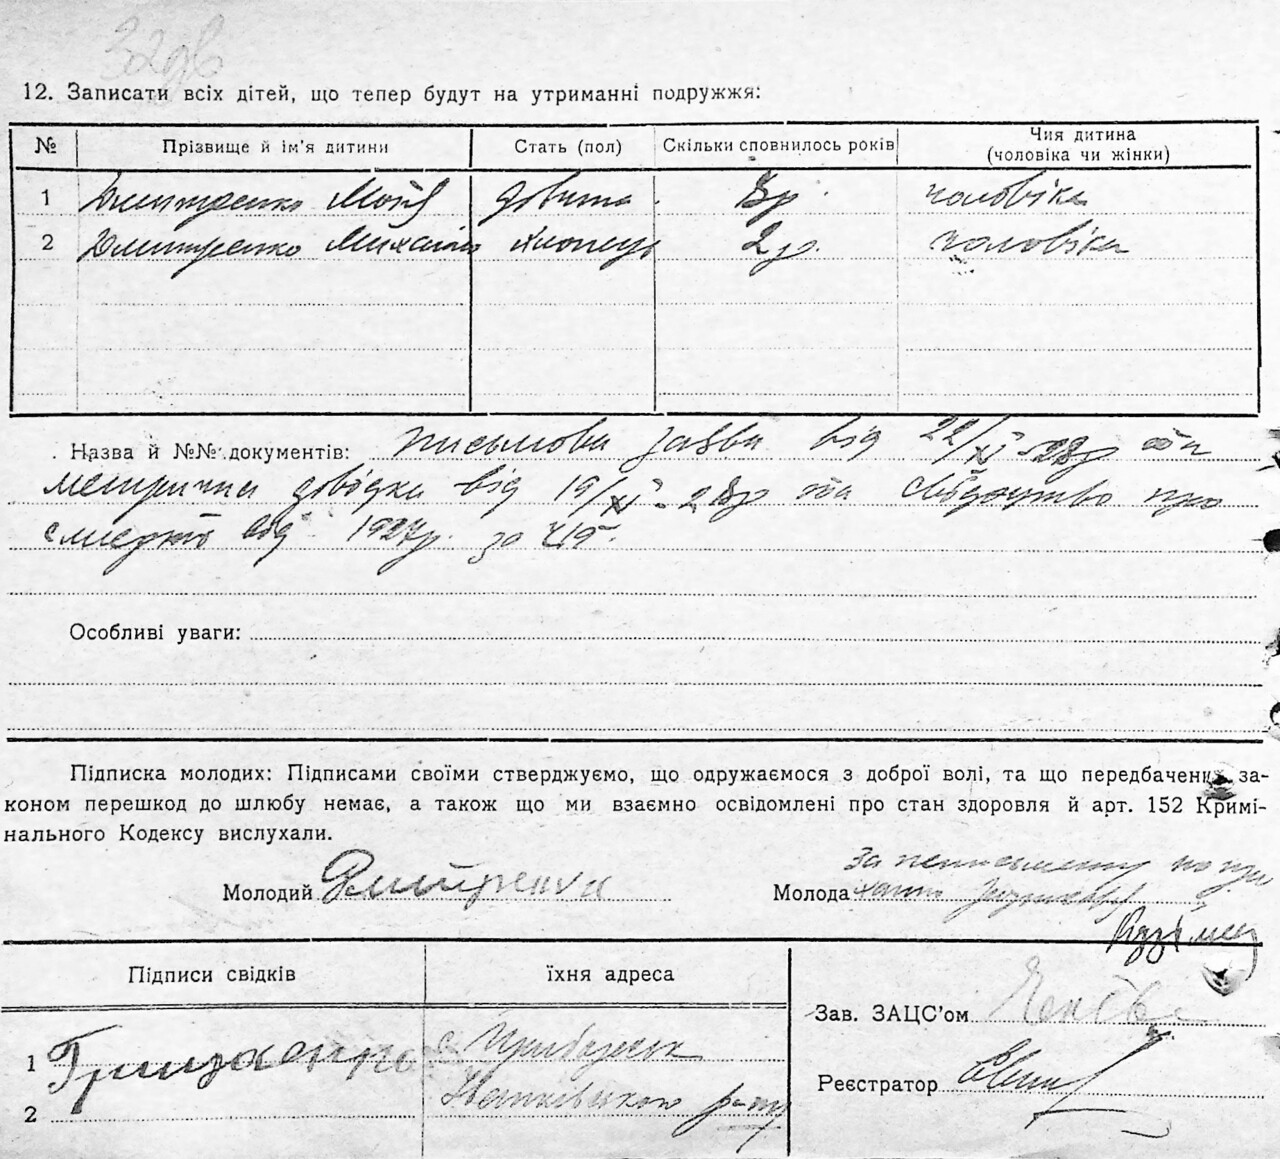 12. Записати всіх дітей, що тепер будут на утриманні подружжя:
№ Прізвище й ім'я дитини Стать (пол) Скільки сповнилось років Чия дитина
(чоловіка чи жінки)
1 Дмитренко 8р. чоловіка
2 Дмитренко Михайло хлопець 2 р. чоловіка
Назва й №№ документів: письмова заява від 22/XI-28р та
метрична довідка від 19/XI-28р та свідоцтво про
смерть від 1927р. за
Особливі уваги:
Підписка молодих: Підписами своїми стверджуємо, що одружаємося з доброї волі, та що передбачених за-
коном перешкод до шлюбу немає, а також що ми взаємно освідомлені про стан здоровля й арт. 152 Кримі-
нального Кодексу вислухали.
Молодий Дмитренко Молода За неписьменну по про
Підписи свідків їхня адреса
Зав. ЗАЦС'ом
1 Гриценко с.
Реєстратор
2